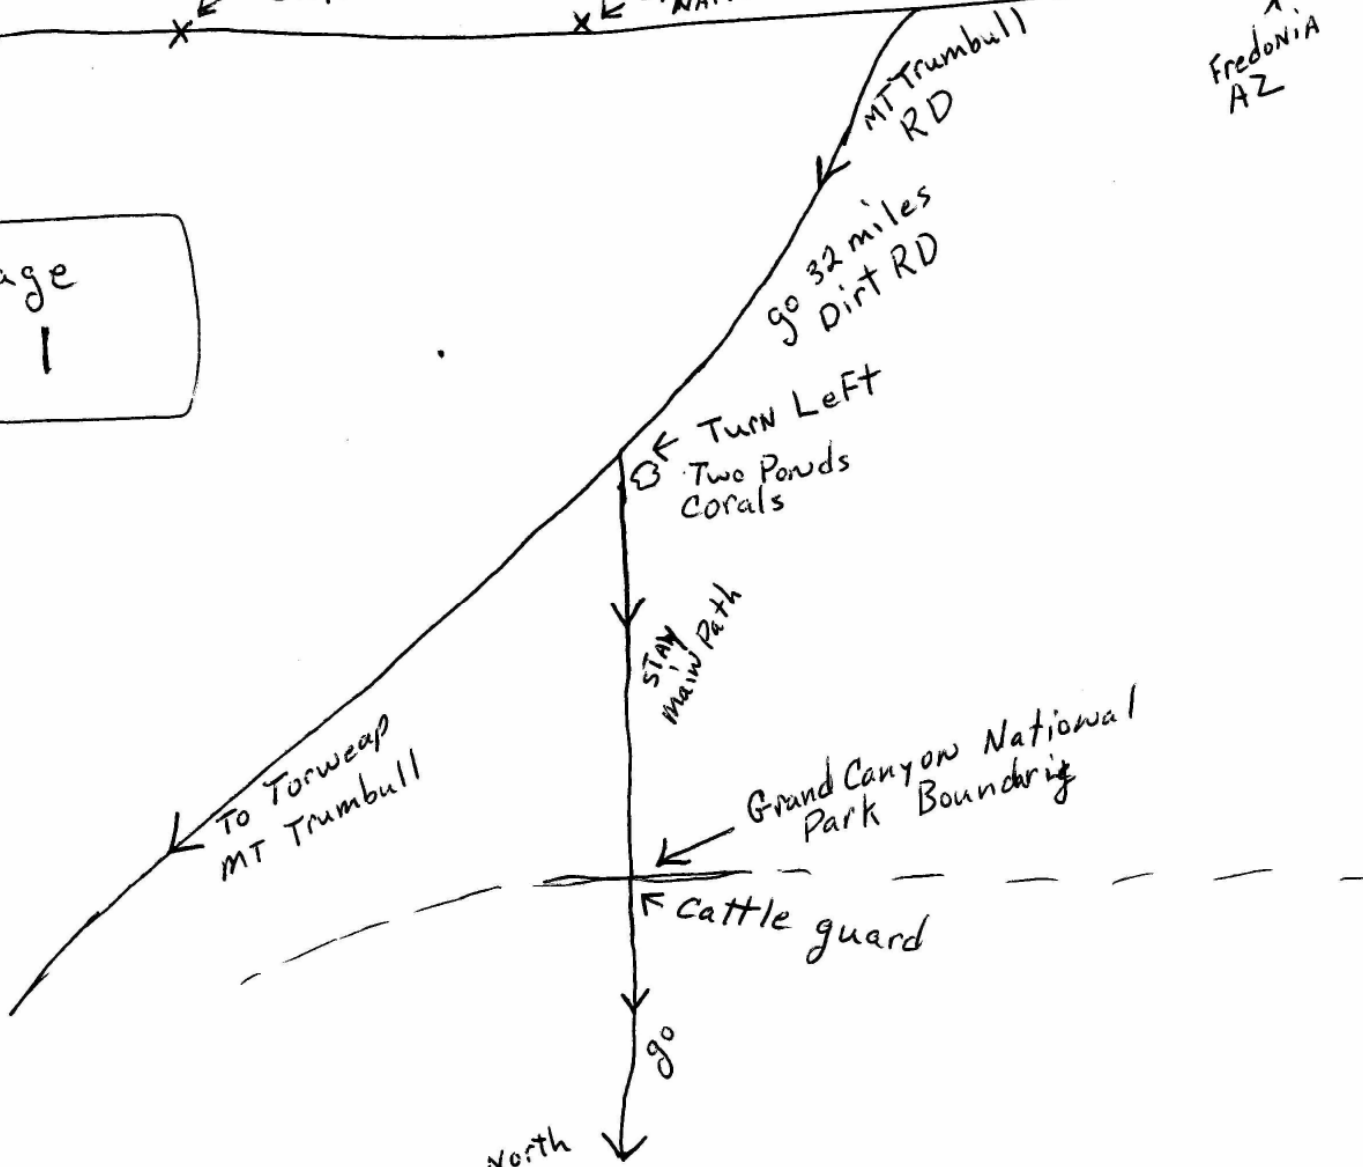 Fredonia
AZ
MT Trumbull
RD
go 32 miles
Dirt RD
age
1
Turn Left
Two Ponds
Corals
STAY
main Path
To Torweap
MT Trumbull
Grand Canyon National
Park
Cattle guard
go
North